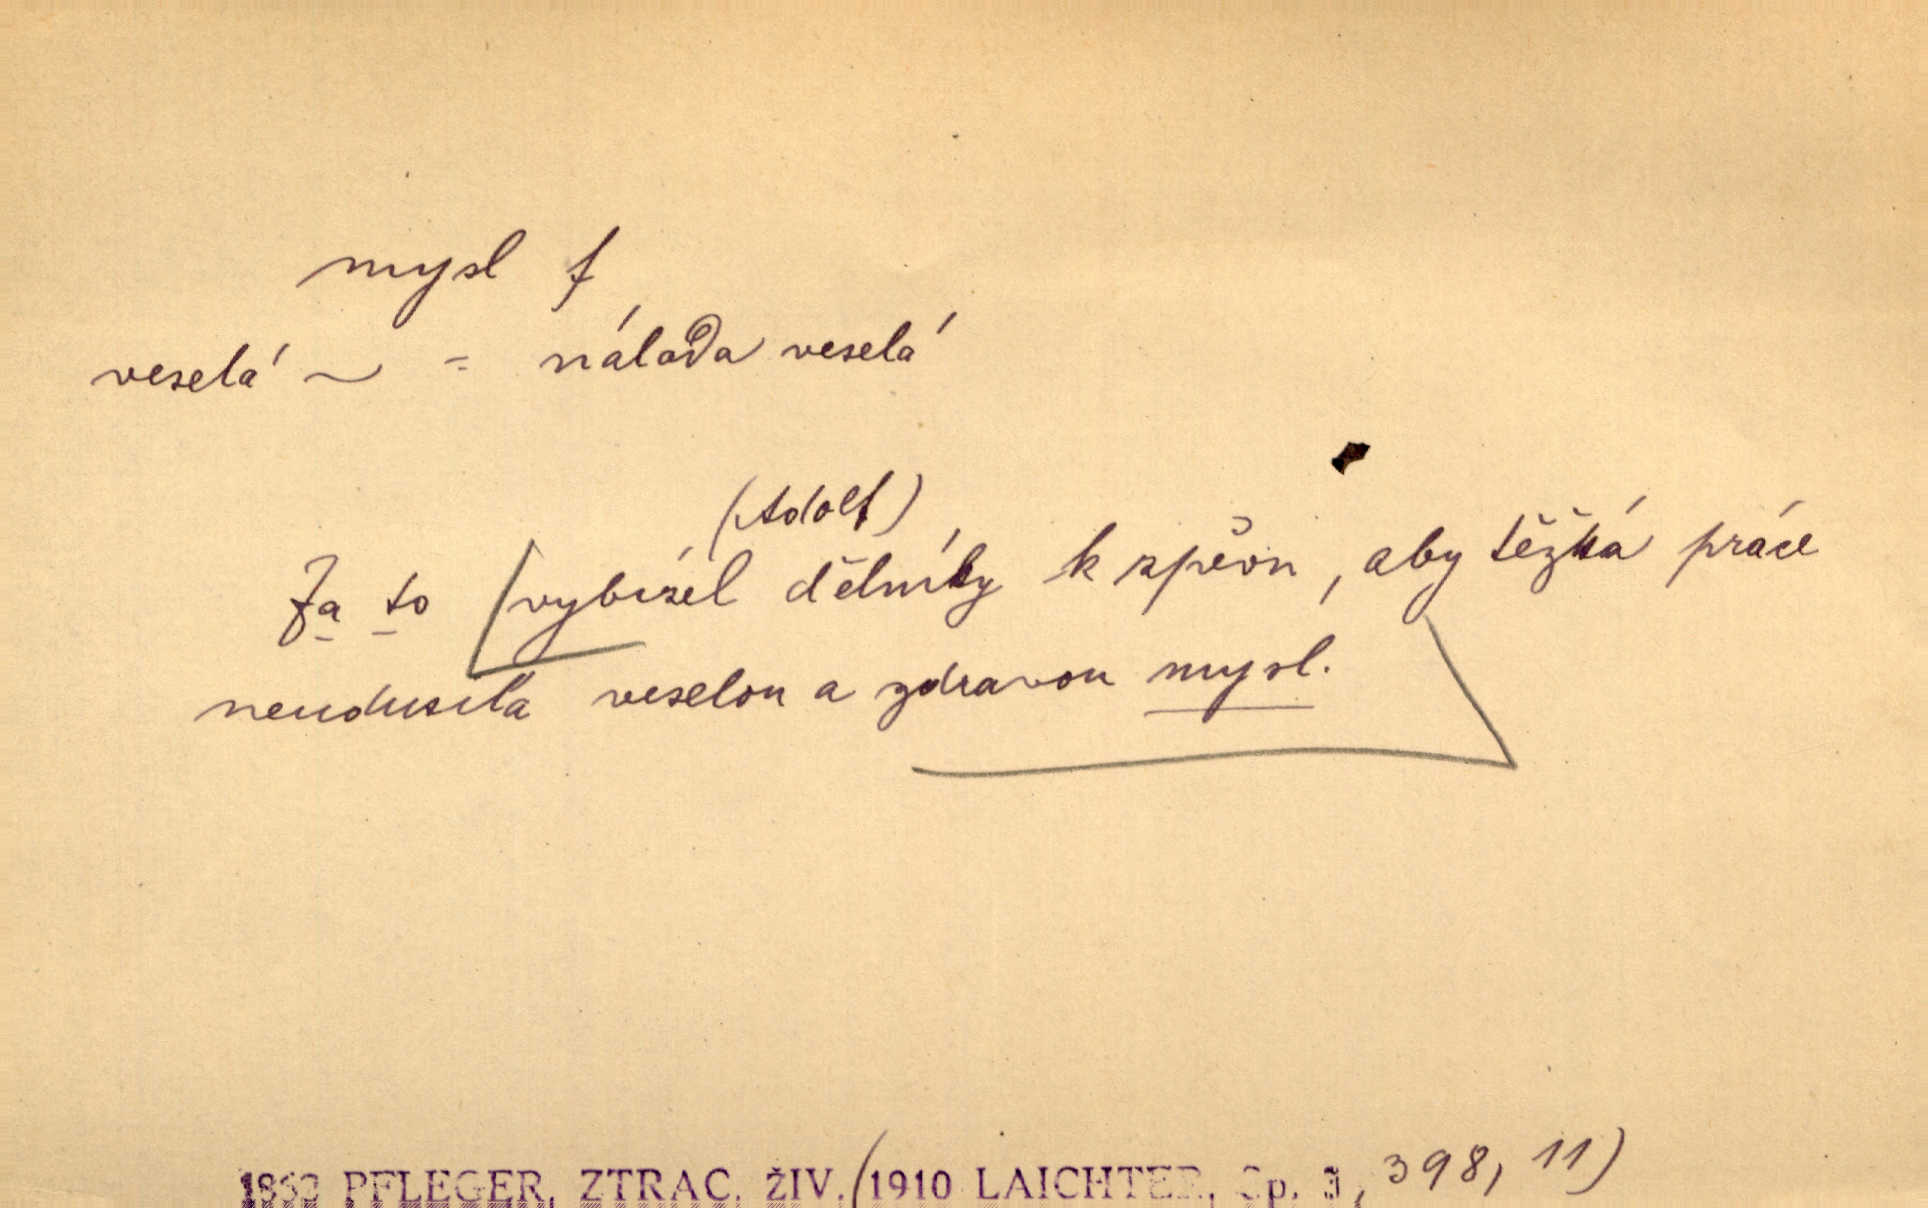 mysl f
veselá ~ = nálada veselá
(Adolf)
Za to vybízel dělníky k zpěvu, aby těžká práce
neudusila veselou a zdravou mysl.
PFLEGER, ZTRAC. ŽIV. (1910 LAICHTER, Sp. 3, 398, 11)